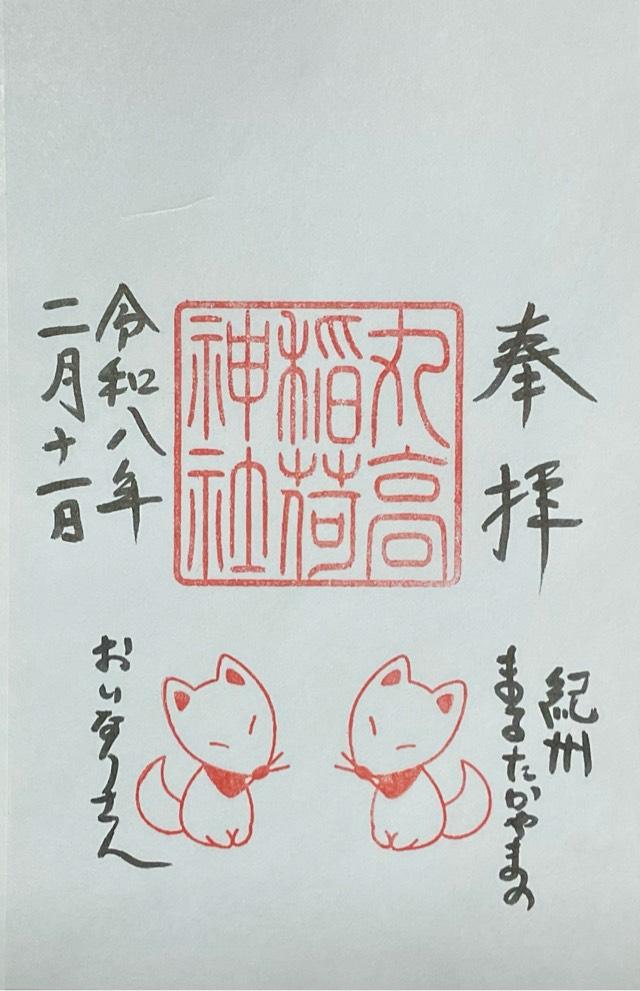 奉拝
丸高
稲荷
神社
令和八年
二月十一日
紀州
まるたかやまの
おいなりさん